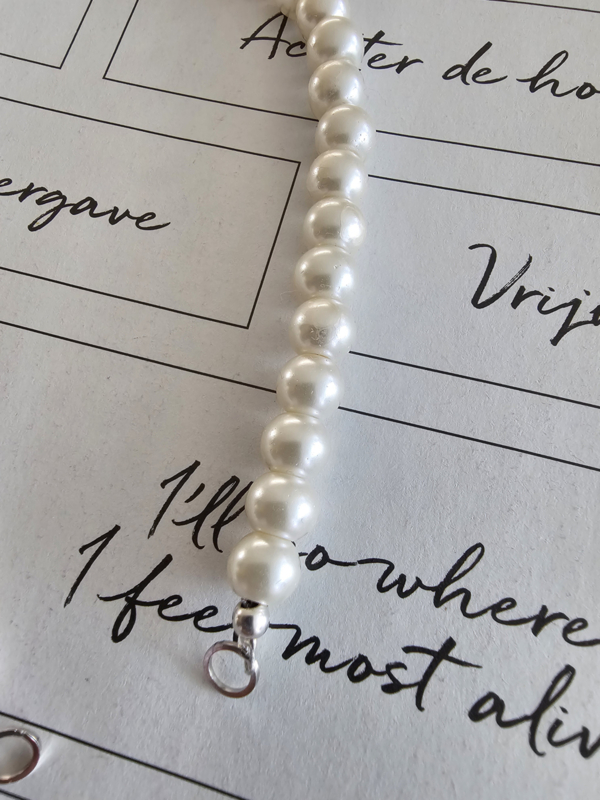 Ac ter de ho
ergave
Vrij
I'll o where
I feel most aliv